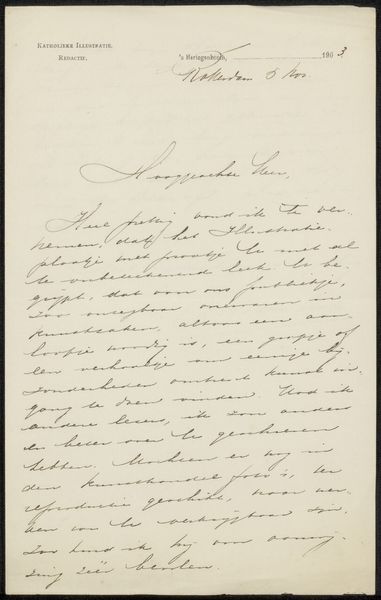 KATHOLIEKE ILLUSTRATIE.
REDACTIE.
's Hertogenbosch, 1903.
Rotterdam 5 Nov.
Hooggeachte Heer,
Heel prettig vond ik te ver-
nemen, dat het Illustratie-
plaatje met praatje U niet al
te onbeduidend leek. U be-
grijpt, dat voor ons publiekje,
zoo onzegbaar onervaren in
kunstzaken, altoos een aan-
loopje noodig is, een grapje of
een verhaaltje om eenige bij-
zonderheden omtrent kunst in-
gang te doen vinden. Had ik
andere lezers, ik zou anders
en beter over U geschreven
hebben. Mochten er nog in
den kunsthandel foto's, ter
reproductie geschikt, naar wer-
ken van U verkrijgbaar zijn,
dan houd ik mij voor aanwij-
zing zéér bevolen.